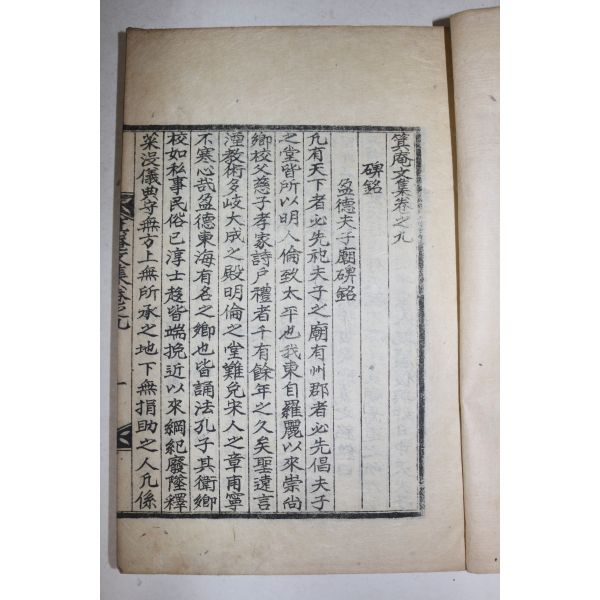 箕庵文集卷之九
碑銘
盈德夫子廟碑銘
凡有天下者必先祀夫子之廟有州郡者必先倡夫子
之堂皆所以明人倫致太平也我東自羅麗以來崇尚
鄉校父慈子孝家詩戶禮者千有餘年之久矣聖遠言
湮教術多岐大成之殿明倫之堂難免宋人之章甫寧
不寒心哉盈德東海有名之鄉也皆誦法孔子其衛鄉
校如私事民俗已淳士趍皆端挽近以來綱紀廢墜釋
菜沒儀典守無方上無所承之地下無捐助之人凡係
文集卷之九
一